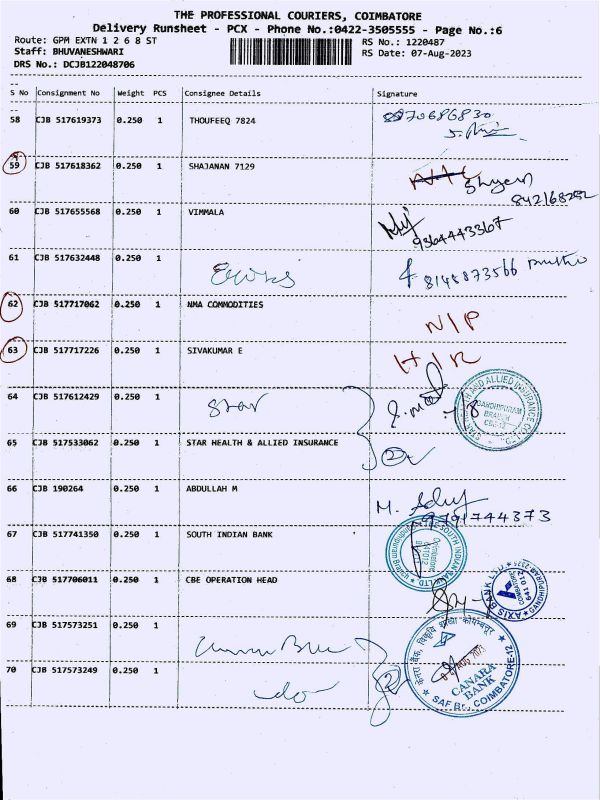 THE PROFESSIONAL COURIERS, COIMBATORE
Delivery Runsheet - PCX - Phone No.:0422-3505555 - Page No.:6
Route: GPM EXTN 1 2 6 8 ST
RS No.: 1220487
Staff: BHUVANESHWARI
RS Date: 07-Aug-2023
DRS No.: DCJB122048706
S No Consignment No Weight PCS Consignee Details Signature
58 CJB 517619373 0.250 1 THOUFEEQ 7824
59 CJB 517618362 0.250 1 SHAJANAN 7129
Shyam
60 CJB 517655568 0.250 1 VIMMALA
9364443367
61 CJB 517632448 0.250 1
8145873566
62 CJB 517717062 0.250 1 NMA COMMODITIES
N/P
63 CJB 517717226 0.250 1 SIVAKUMAR E
64 CJB 517612429 0.250 1
Star
STAR HEALTH AND ALLIED INSURANCE CO. LTD.
GANDHIPURAM
BRANCH
CBE-12
65 CJB 517533062 0.250 1 STAR HEALTH & ALLIED INSURANCE
2
66 CJB 190264 0.250 1 ABDULLAH M
9791744373
67 CJB 517741350 0.250 1 SOUTH INDIAN BANK
THE SOUTH INDIAN BANK LTD
Gandhipuram Branch
Coimbatore
641012
68 CJB 517706011 0.250 1 CBE OPERATION HEAD
AXIS BANK LTD
GANDHIPURAM
COIMBATORE
641 012
69 CJB 517573251 0.250 1
70 CJB 517573249 0.250 1
do
2
AUG 2023
CANARA
BANK
SAF Br., COIMBATORE-12